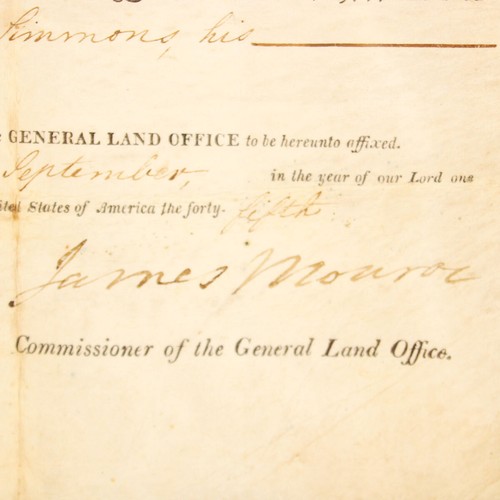 Simmons, his
GENERAL LAND OFFICE to be hereunto affixed.
September, in the year of our Lord one
ited States of America the forty-fifth
James Monroe
Commissioner of the General Land Office.